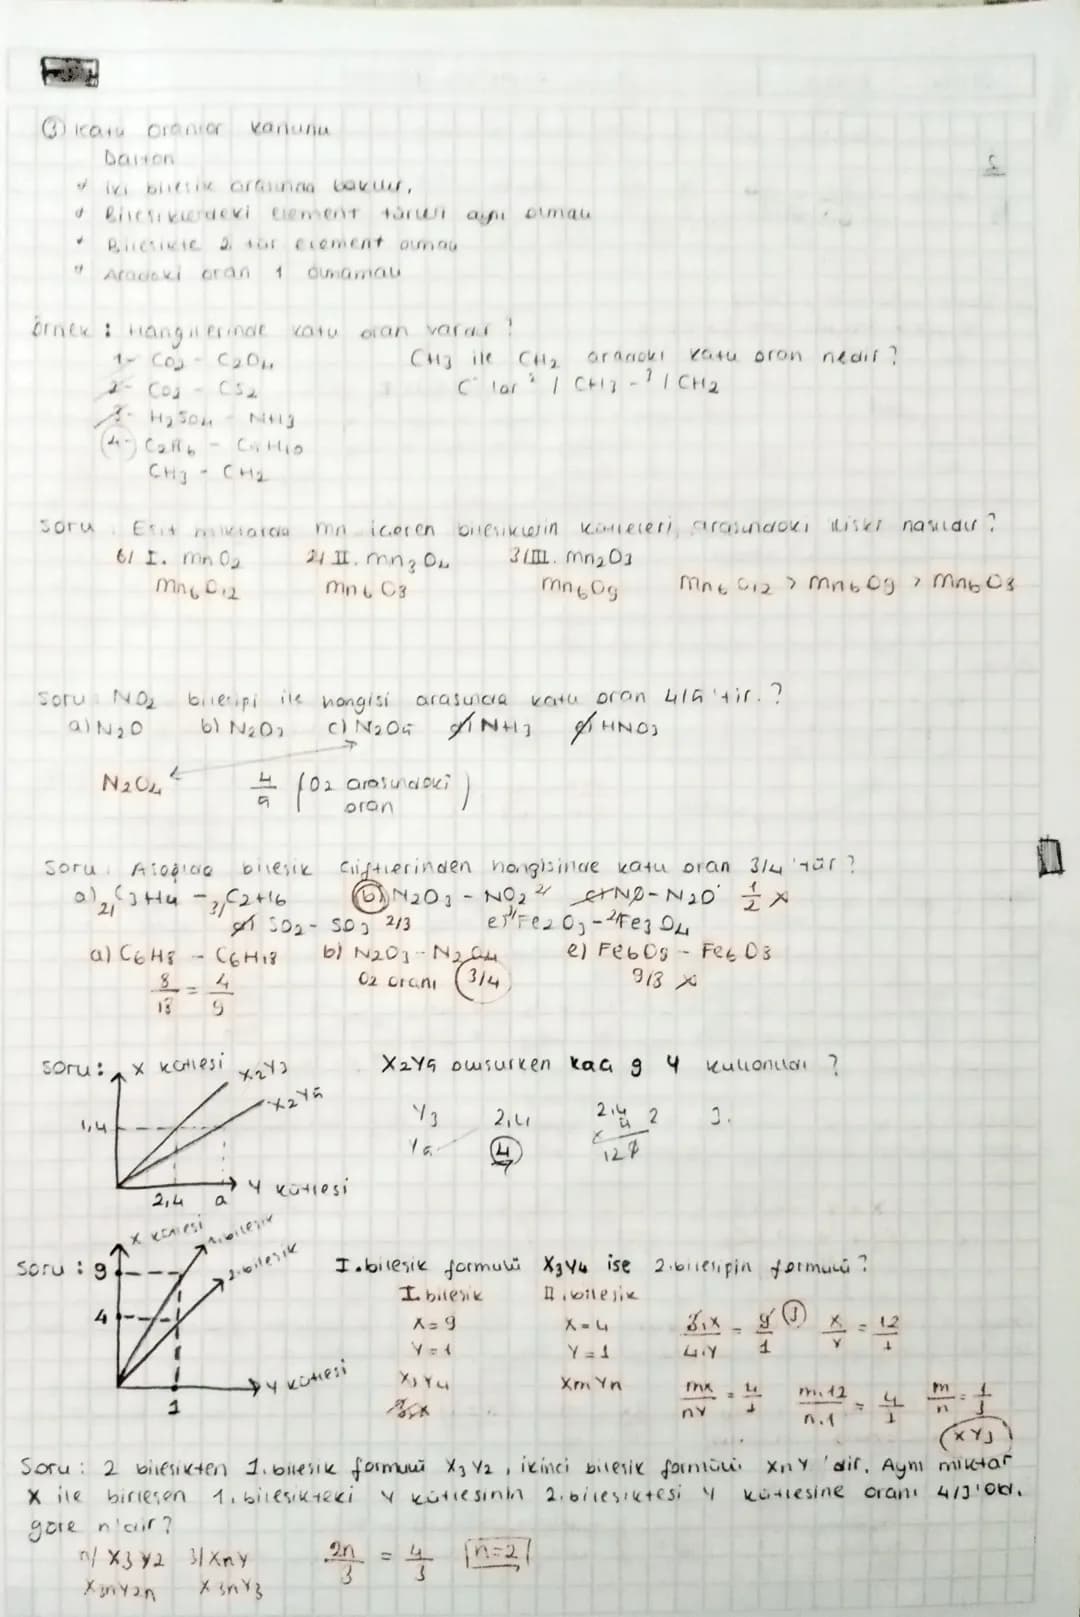 ③ Katlı oranlar kanunu
Dalton
İki bileşik arasında bakılır.
Bileşiklerdeki element türleri aynı olmalı
Bileşikte 2 tür element olmalı
Aradaki oran 1 olmamalı
Örnek : Hangilerinde katlı oran vardır ?
1- CO2 - C2O4
2- CO2 - CS2
3- H2SO4 - NH3
4- C2H6 - C4H10
CH3 - CH2
CH3 ile CH2 aradaki katlı oran nedir ?
C lar 2/ CH3 - 3/ CH2
Soru : Eşit miktarda mn içeren bileşiklerin kütleleri arasındaki ilişki nasıldır ?
6/ I. mnO2 2/ II. mn3O4 3/ III. mn2O3
Mn6O12 mn6O8 mn6O9 Mn6O12 > Mn6O9 > Mn6O8
Soru : NO2 bileşiği ile hangisi arasında katlı oran 4/5'tir. ?
a) N2O b) N2O3 c) N2O5 d) NH3 e) HNO3
N2O4 4/5 (O2 arasındaki oran)
Soru : Aşağıda bileşik çiftlerinden hangisinde katlı oran 3/4'tür ?
a) 2/ C3H4 - 3/ C2H6 b) N2O3 - NO2 2/ c) NO - N2O 1/2 x
d) SO2 - SO3 2/3 e) 3/ Fe2O3 - 2/ Fe3O4
a) C6H8 - C6H18 b) N2O3 - N2O4 e) Fe6O9 - Fe6O8
8/18 = 4/9 O2 oranı 3/4 9/8 x
Soru : X kütlesi X2Y3 X2Y5 oluşurken kaç g Y kullanıldı ?
X2Y5
1,4
Y3 2,4
Y5 4
2,4 a Y kütlesi
X kütlesi 1.bileşik
2.bileşik
Soru : 9 I.bileşik formülü X3Y4 ise 2.bileşiğin formülü ?
I.bileşik II.bileşik
X=9 X=4 3.X/4.Y = 9/1 X/Y = 12/1
4
Y=1 Y=1
X3Y4 XmYn mX/nY = 4/1 m.12/n.1 = 4/1 m/n = 1/3
Y kütlesi
1
XY3
Soru : 2 bileşikten 1.bileşik formülü X3Y2 , ikinci bileşik formülü XnY 'dir. Aynı miktar
X ile birleşen 1.bileşikteki Y kütlesinin 2.bileşikteki Y kütlesine oranı 4/3'old.
göre n'dir ?
n/ X3Y2 3/ XnY 2n/3 = 4/3 n=2
X3nY2n X3nY3